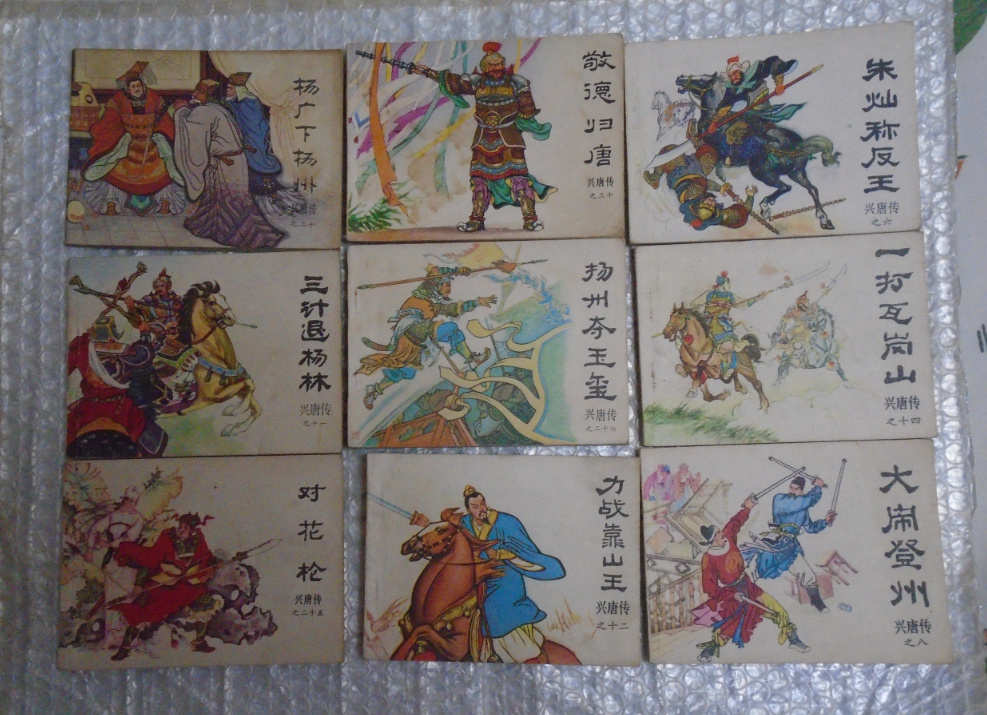 杨广下扬州
兴唐传
之二十
敬德归唐
兴唐传
之三十
朱灿称反王
兴唐传
之六
三计退杨林
兴唐传
之十一
扬州夺玉玺
兴唐传
之二十六
一打瓦岗山
兴唐传
之十四
对花枪
兴唐传
之二十五
力战靠山王
兴唐传
之十二
大闹登州
兴唐传
之八